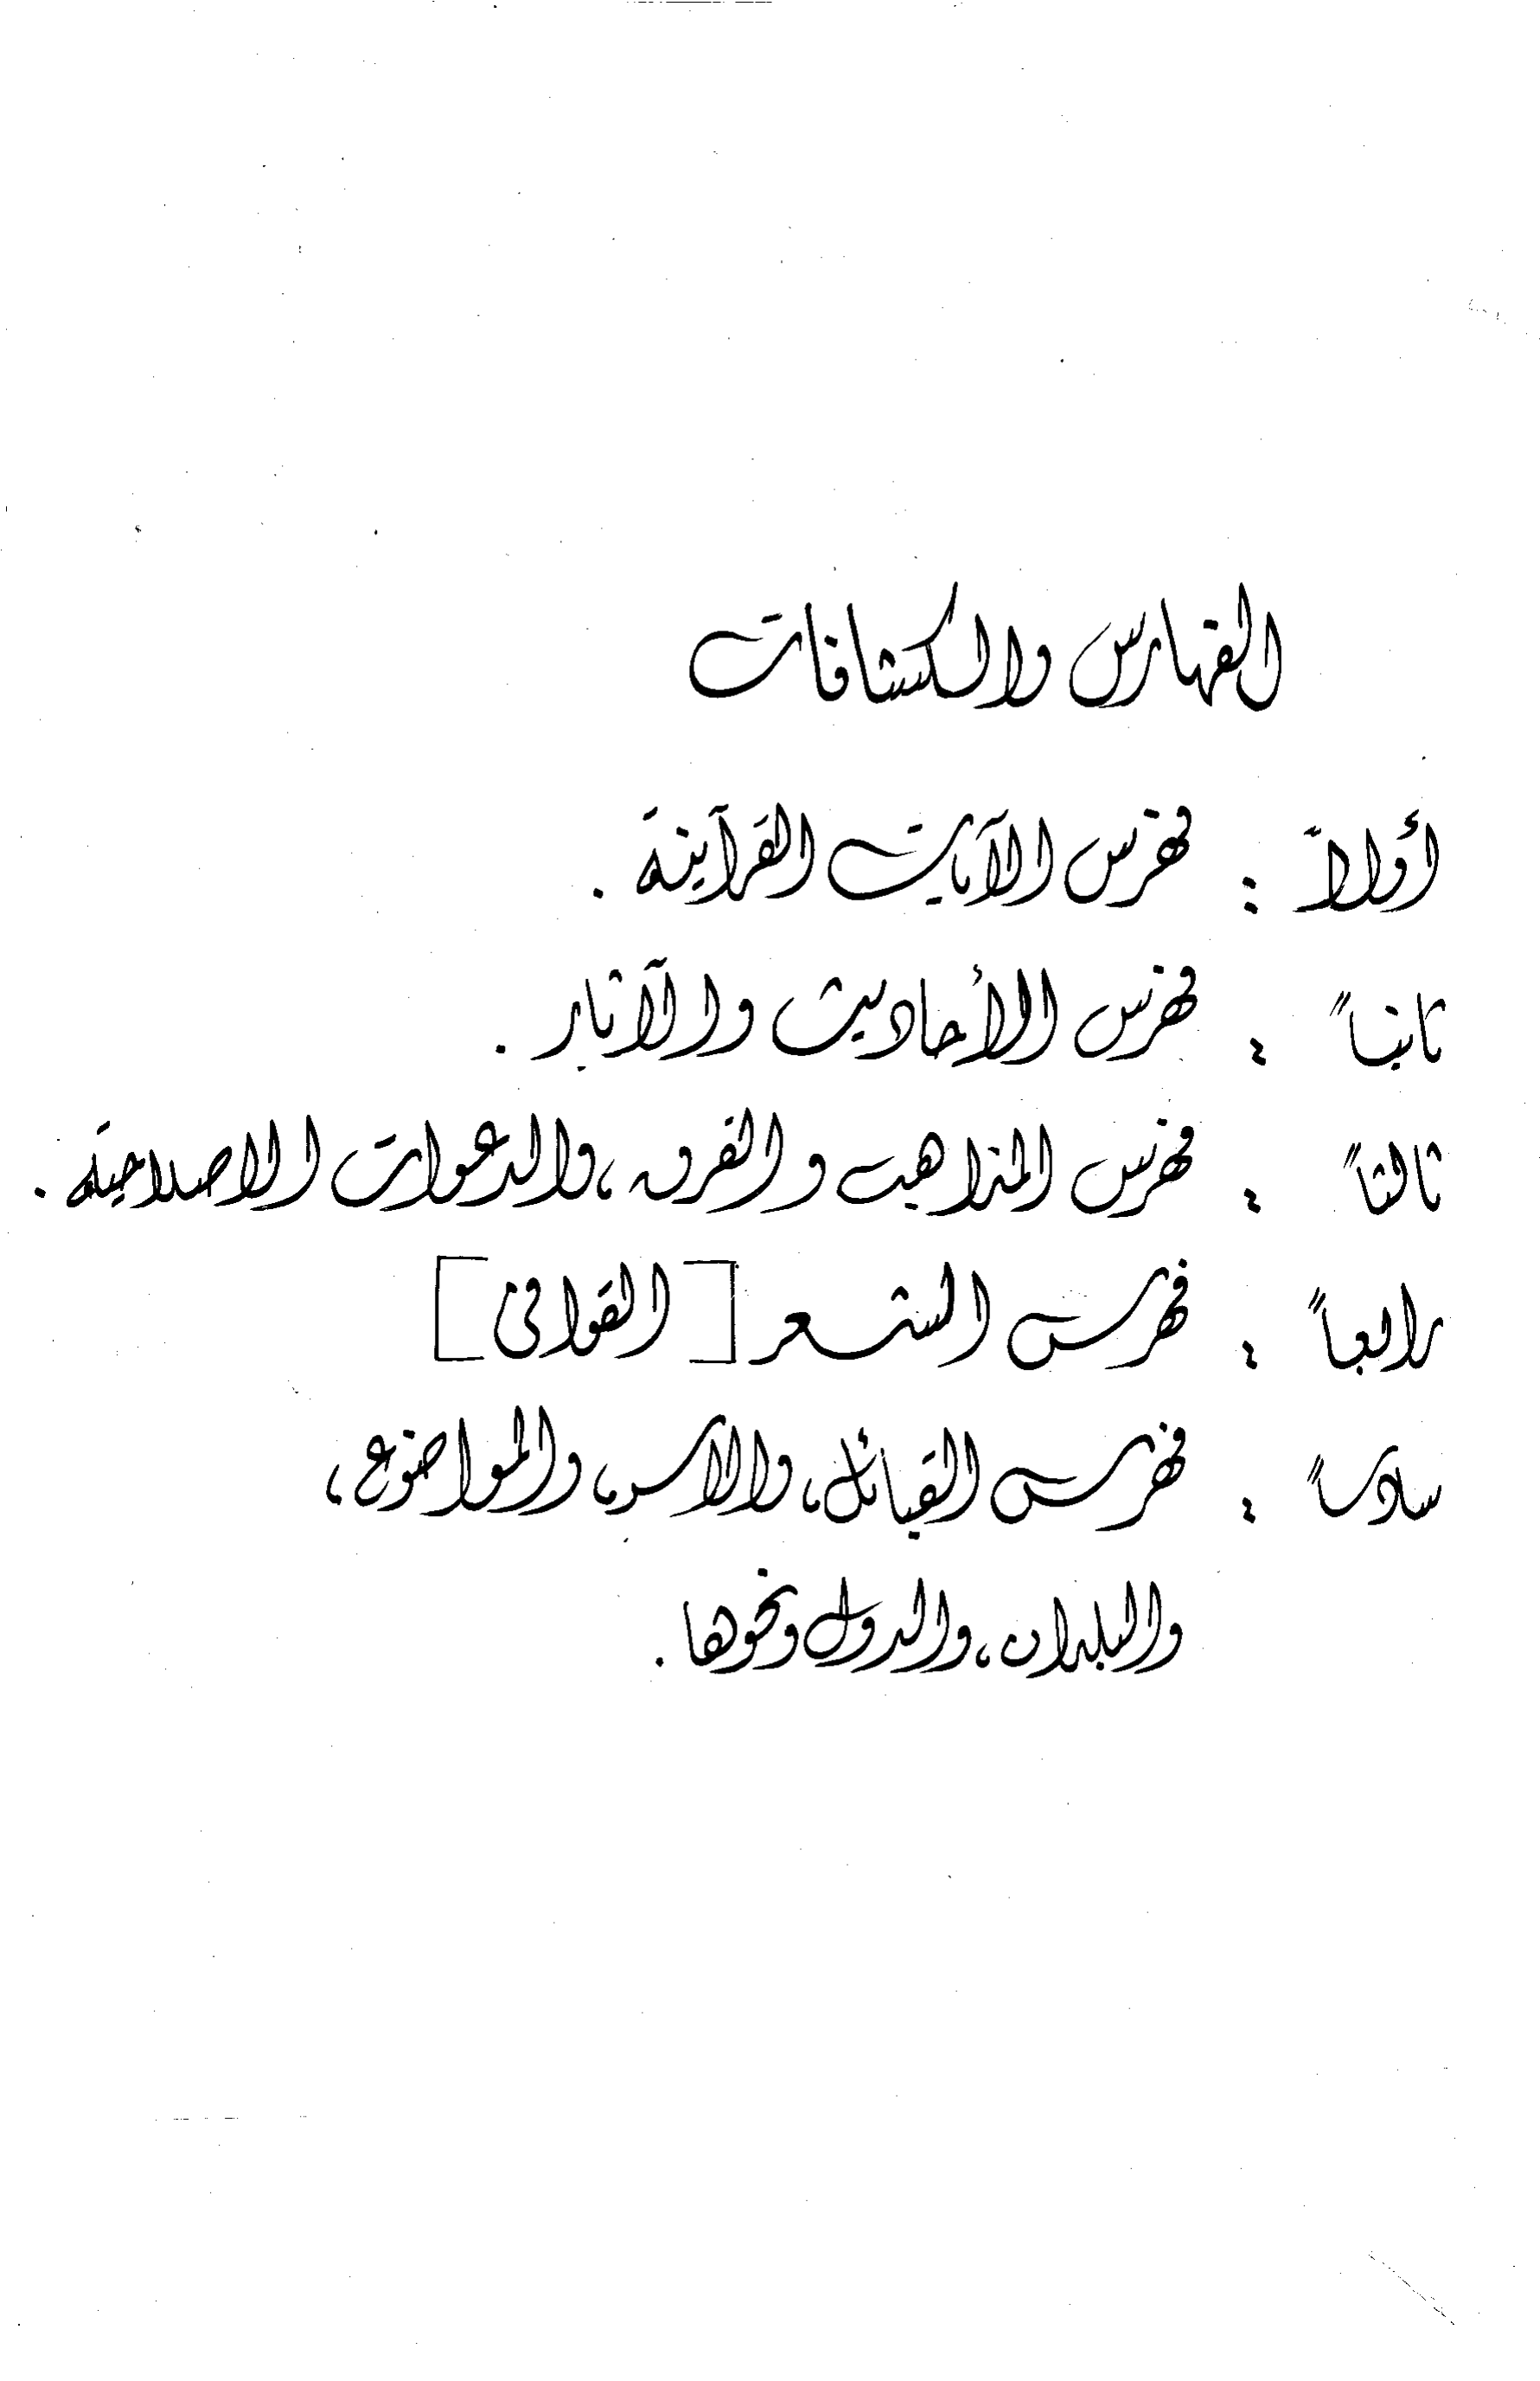 الفهارس والكشافات
أولاً : فهرس الآيات القرآنية .
ثانياً : فهرس الأحاديث والآثار .
ثالثاً : فهرس المذاهب والفرق ، والدعوات الاصلاحية .
رابعاً : فهرس الشعر [ القوافي ]
سادساً : فهرس القبائل ، والأسر ، والمواضع ،
والبلدان ، والدول ونحوها .